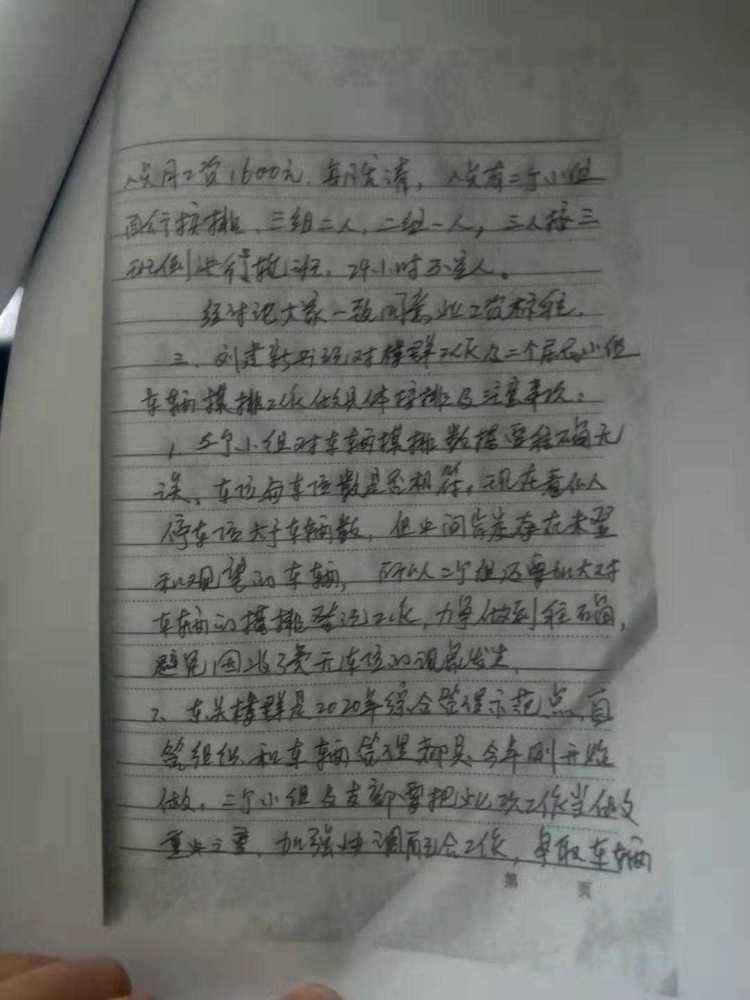 人员月工资1600元,每月发清,人员有二个小组
自行按排,三组二人,二组一人,三人按三
班倒进行执班,24小时不空人。
经讨论大家一致同意此工资标准。
三、刘建新书记对楼群工作及二个居民小组
车辆摸排工作做具体按排及注意事项:
1、各个小组对车辆摸排数据要准确无
误,车位与车位数是否相符,现在看似
停车位大于车辆数,但中间肯定存在未登
和观望的车辆,所以二个组还要加大对
车辆的摸排登记工作,力争做到准确,
避免因收了费无车位的现象发生。
2、东关楼群是2020年综合管理示范点,自
管组织和车辆管理都是今年刚开始
做,二个小组与支部要把此次工作当做
重中之重,加强协调配合工作,争取车辆
第 页